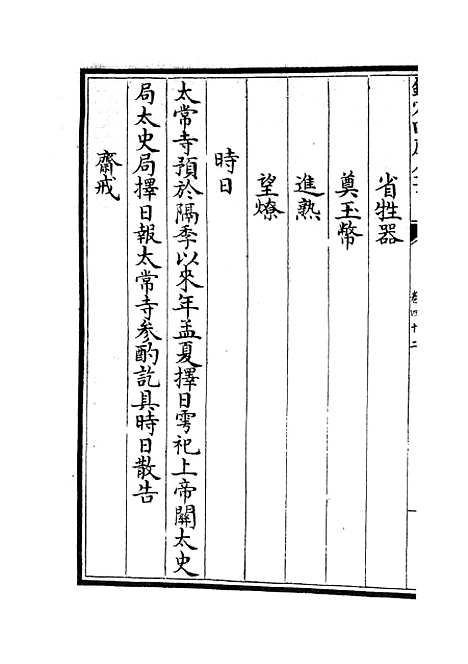 卷四十二
省牲器
奠玉幣
進熟
望燎
時日
太常寺預於隔季以來年孟夏擇日雩祀上帝關太史
局太史局擇日報太常寺參酌訖具時日散告
齋戒